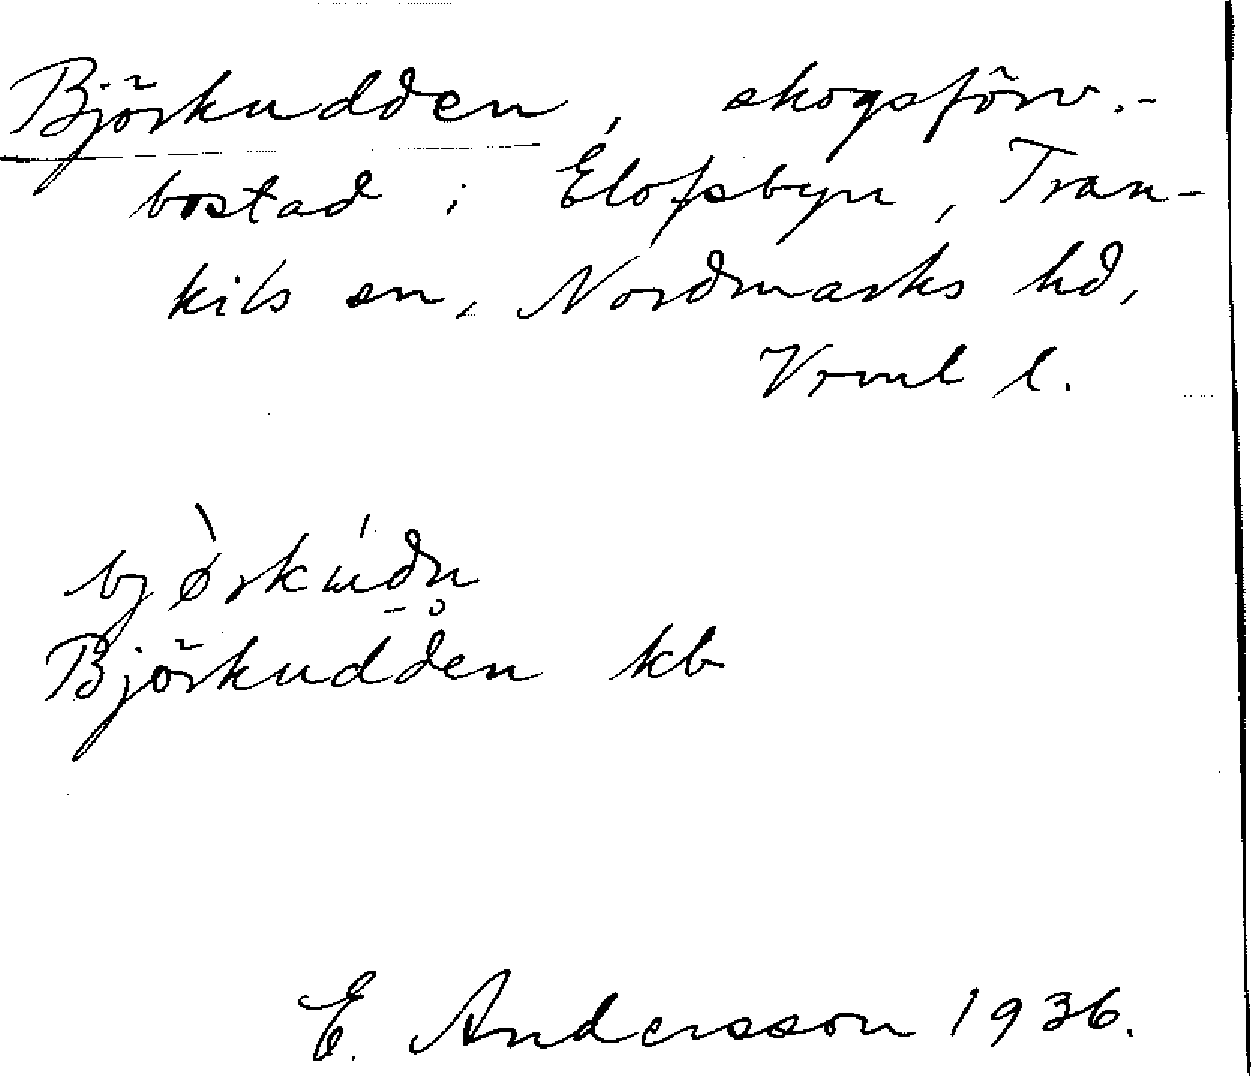 Björkudden, skogsförv.-
bostad i Elofsbyn, Tran-
kils sn, Nordmarks hd,
Vrml l.
bjø̀rkúdn̥
Björkudden kb
E. Andersson 1936.